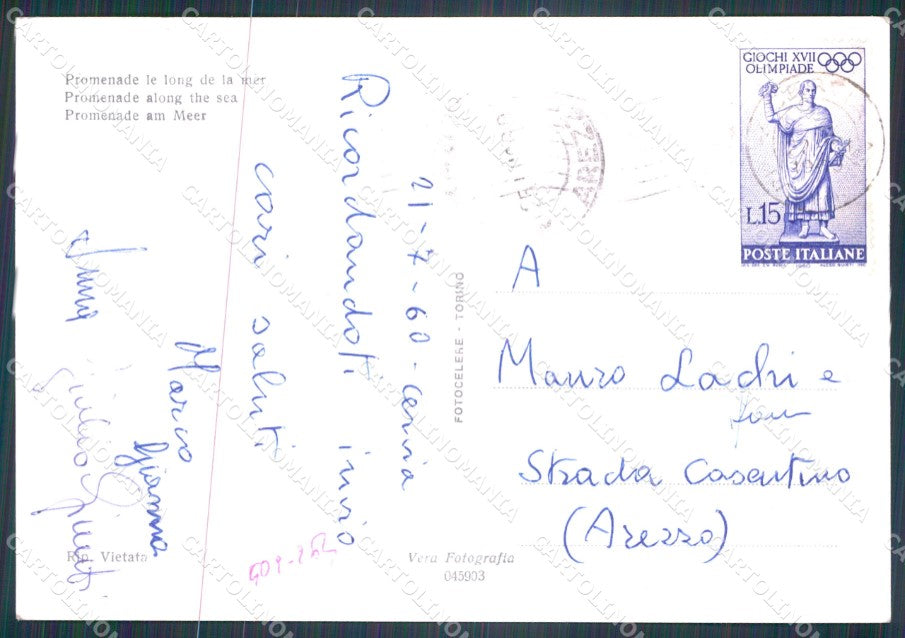 Promenade le long de la mer
Promenade along the sea
Promenade am Meer
GIOCHI XVII
OLIMPIADE
L.15
POSTE ITALIANE
21-7-60-Cervia
Ricordandoti invio
cari saluti
Marco
Gianna
A
Mauro Lachi e
fam
Strada Casentino
(Arezzo)
FOTOCELERE - TORINO
Rip. Vietata
Vera Fotografia
045903
CARTOLINOMANIA